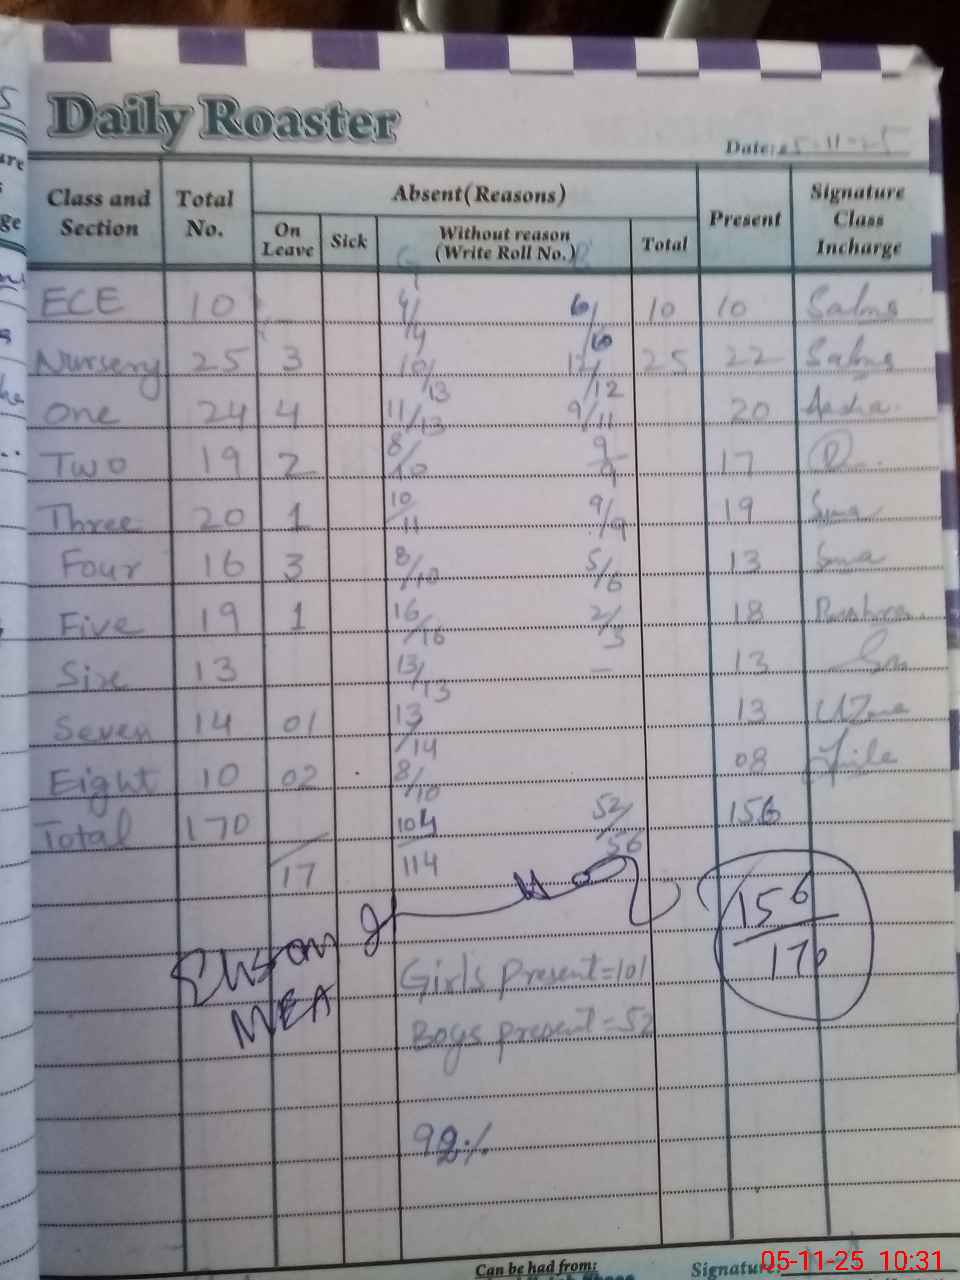 Daily Roaster
Date: 5-11-25
Class and Section Total No. Absent(Reasons) Present Signature Class Incharge
On Leave Sick Without reason (Write Roll No.) Total
ECE 10 4/4 6/6 10 10 Salma
Nursery 25 3 10/13 12/12 25 22 Salma
One 24 4 11/13 9/11 20
Two 19 2 8/10 9/9 17
Three 20 1 10/11 9/9 19
Four 16 3 8/10 5/6 13
Five 19 1 16/16 2/3 18
Six 13 13/13 — 13
Seven 14 01 13/14 13 Uzma
Eight 10 02 8/10 08
Total 170 17 104/114 52/56 156
156/170
MEA
Girls Present=101
Boys present=52
92%
Can be had from:
Signature
05-11-25 10:31